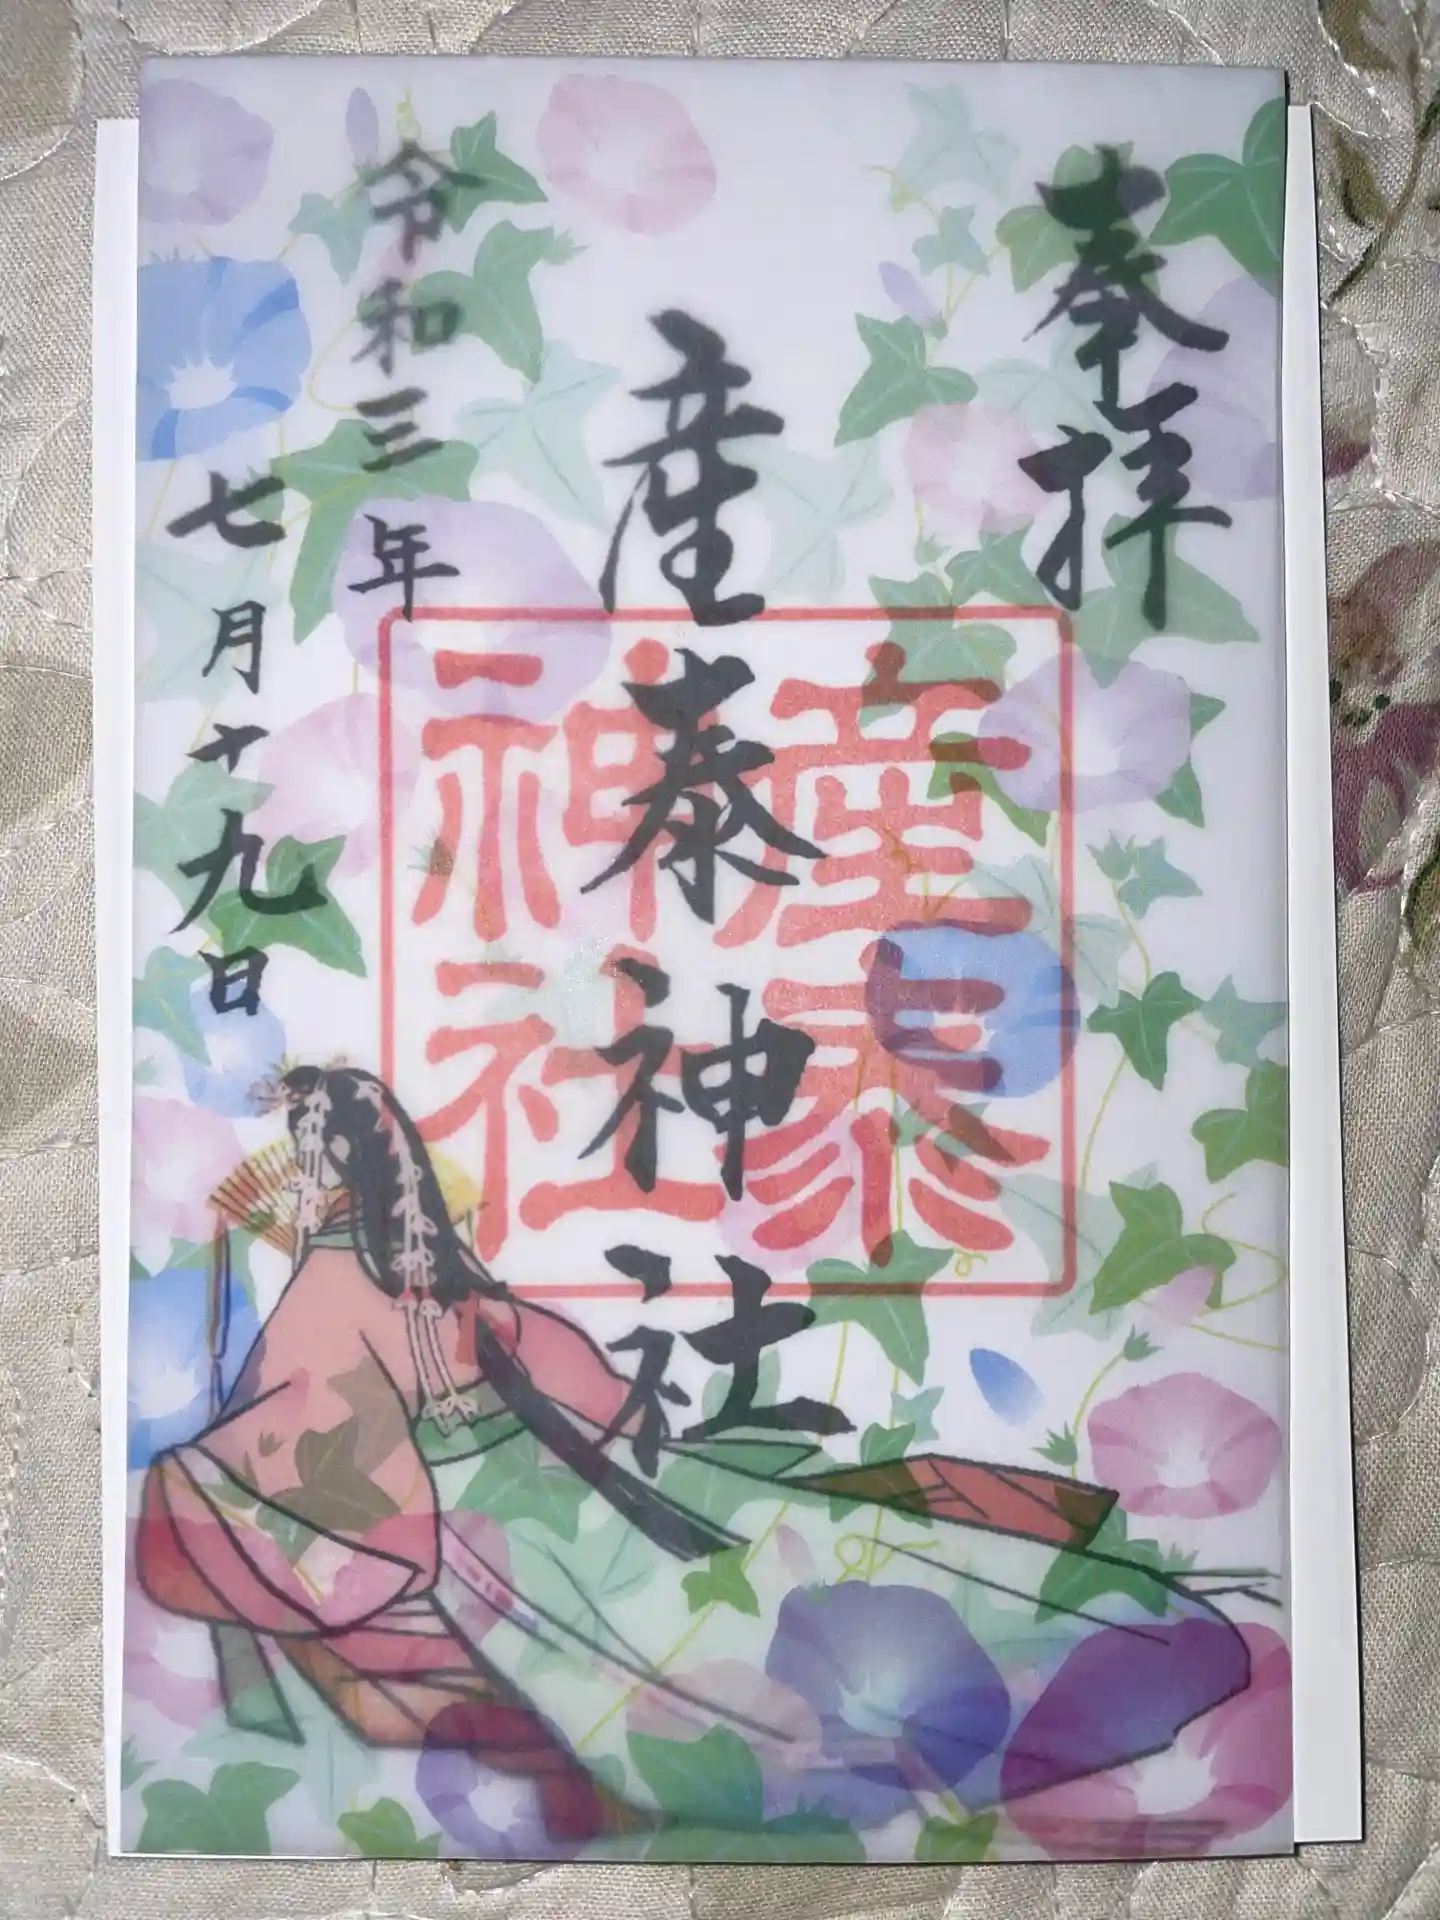 奉拝
産泰神社
産泰
神社
令和三年
七月十九日